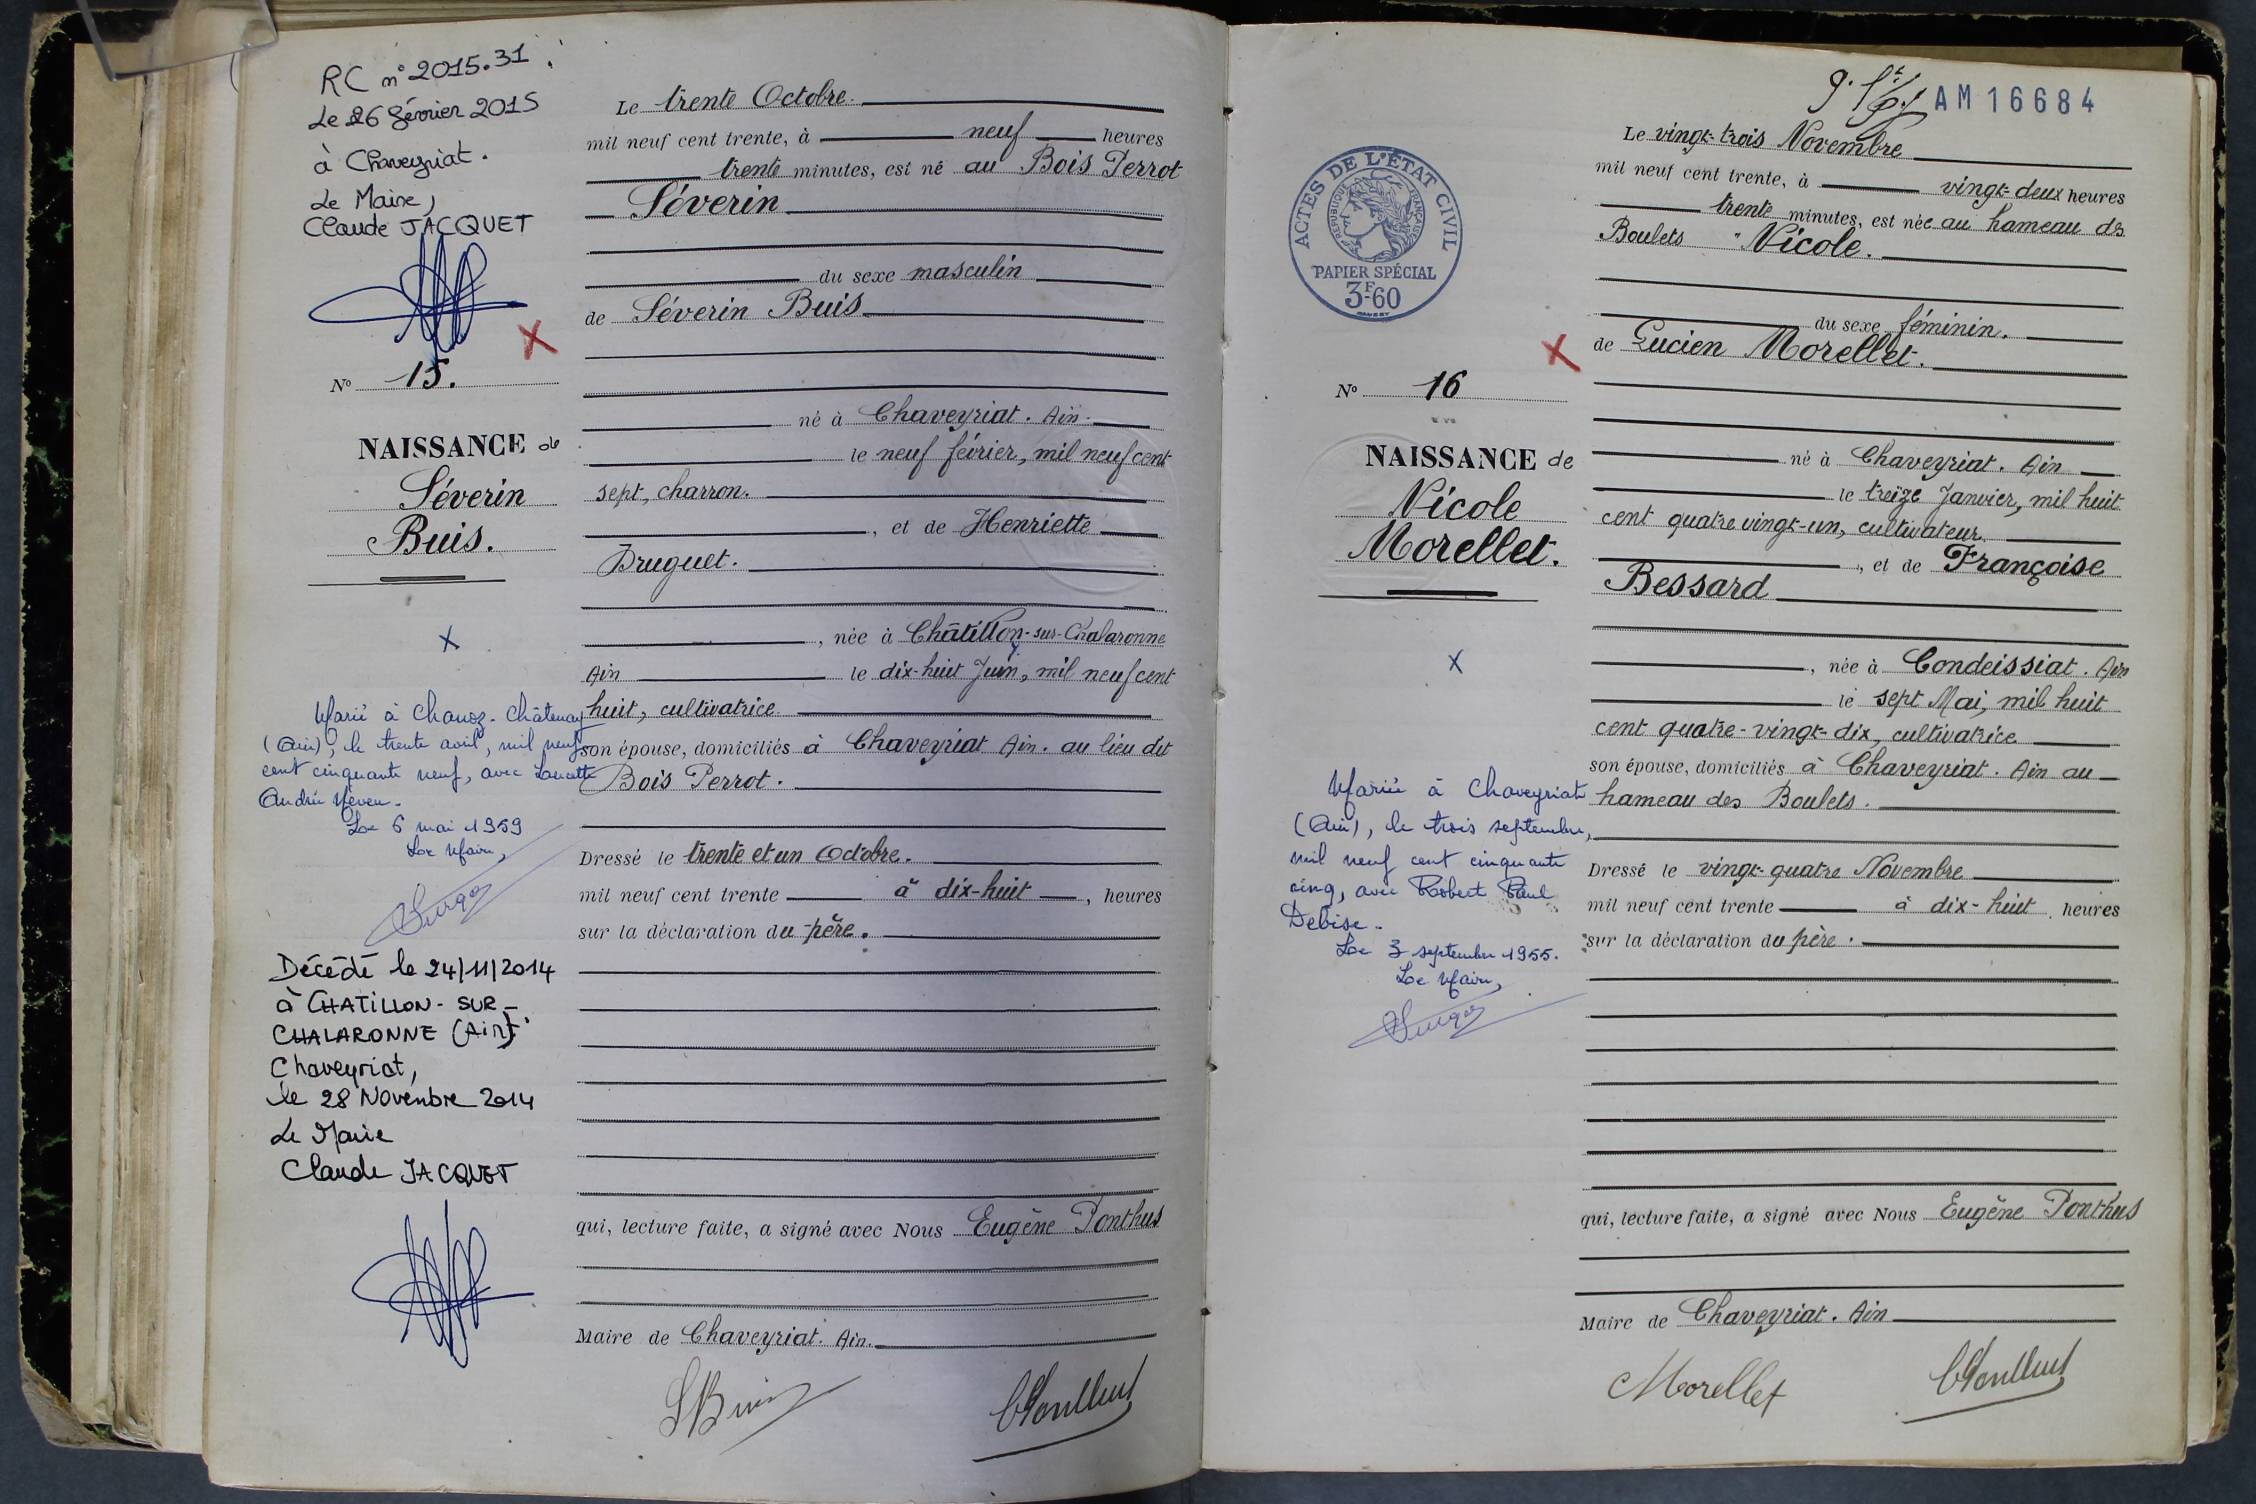 RC n° 2015.31
Le 26 février 2015
à Chaveyriat.
Le Maire,
Claude JACQUET
N° 15.
NAISSANCE de
Séverin
Buis.
X
Marié à Chanoz-Châtenay
(Ain), le trente avril, mil neuf
cent cinquante neuf, avec Lucette
Andrée Neveu.
Le 6 mai 1959
Le Maire,
Décédé le 24/11/2014
à CHATILLON-SUR-
CHALARONNE (Ain).
Chaveyriat,
le 28 Novembre 2014
Le Maire
Claude JACQUET
Le trente Octobre.
mil neuf cent trente, à neuf heures
trente minutes, est né au Bois Perrot
Séverin
du sexe masculin
de Séverin Buis
né à Chaveyriat. Ain.
le neuf février, mil neuf cent
sept, charron.
, et de Henriette
Druguet.
, née à Châtillon-sur-Chalaronne
Ain le dix-huit Juin, mil neuf cent
huit, cultivatrice
son épouse, domiciliés à Chaveyriat Ain. au lieu dit
Bois Perrot.
Dressé le trente et un Octobre.
mil neuf cent trente à dix-huit, heures
sur la déclaration du père.
qui, lecture faite, a signé avec Nous Eugène Ponthus
Maire de Chaveyriat. Ain.
SBuis
EPonthus
AM16684
ACTES DE L'ÉTAT CIVIL
RÉPUBLIQUE FRANÇAISE
PAPIER SPÉCIAL
3F-60
N° 16
NAISSANCE de
Nicole
Morellet.
X
Marié à Chaveyriat
(Ain), le trois septembre,
mil neuf cent cinquante
cinq, avec Robert Paul
Debise.
Le 3 septembre 1955.
Le Maire,
Le vingt-trois Novembre
mil neuf cent trente, à vingt-deux heures
trente minutes, est née au hameau des
Boulets Nicole.
du sexe féminin.
de Lucien Morellet.
né à Chaveyriat. Ain
le treize Janvier, mil huit
cent quatre vingt-un, cultivateur
, et de Françoise
Bessard
, née à Condeissiat. Ain
le sept Mai, mil huit
cent quatre-vingt-dix, cultivatrice
son épouse, domiciliés à Chaveyriat. Ain au
hameau des Boulets.
Dressé le vingt-quatre Novembre
mil neuf cent trente à dix-huit, heures
sur la déclaration du père.
qui, lecture faite, a signé avec Nous Eugène Ponthus
Maire de Chaveyriat. Ain
Morellet
EPonthus